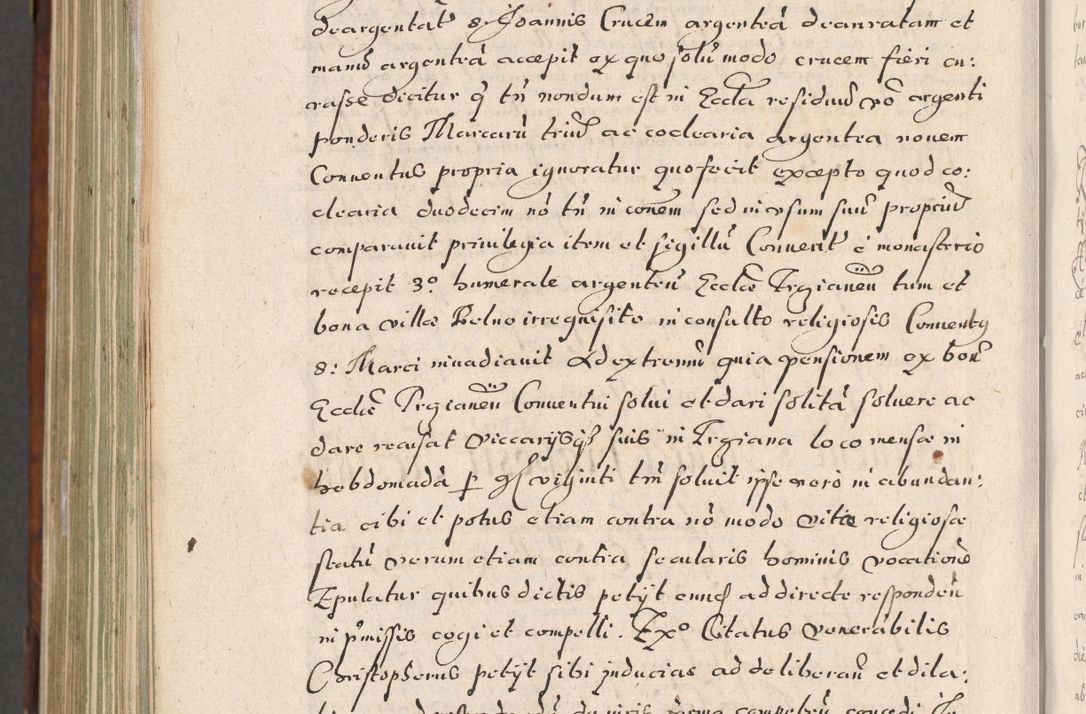 deargentat S. Joannis Crucem argenteā deauratam et
manū argenteā accepit ex quo solū modo crucem fieri cu:
rasse dicitur q̄ tn̄ nondum est in Eccła residuū vō argenti
ponderis Marcarū triū ac coclearia argentea novem
Conventus propria ignoratur quo fecit excepto quod co:
clearia duodecim nō tn̄ in cōnem sed in usum suū propriū
comparavit privilegia item et sigillū Convent̄ è monasterio
recepit 3º humerale argenteū Ecclæ Trzianeñ tum et
bona villæ Belno irrequisito inconsulto religiosis Conventus
S: Marci invadiavit Ad extremū quia pensionem ex bon̄
Ecclæ Przianeñ Conventui solui et dari solitā soluere ac
dare recusat Viccarijsq3 suis in Trziana loco mensæ in
hebdomadā p gr viginti tm̄ soluit ipse vero in abundan:
tia cibi et potus etiam contra nō modo vitæ religiosæ
statū verum etiam contra secularis hominis vocationē
Epulatur quibus dictis petijt eundē ad directe respondeñ
in p̄missis cogi et compelli. Exº Citatus Venerabilis
Christopherus petijt sibi inducias ad deliberañ et dila: